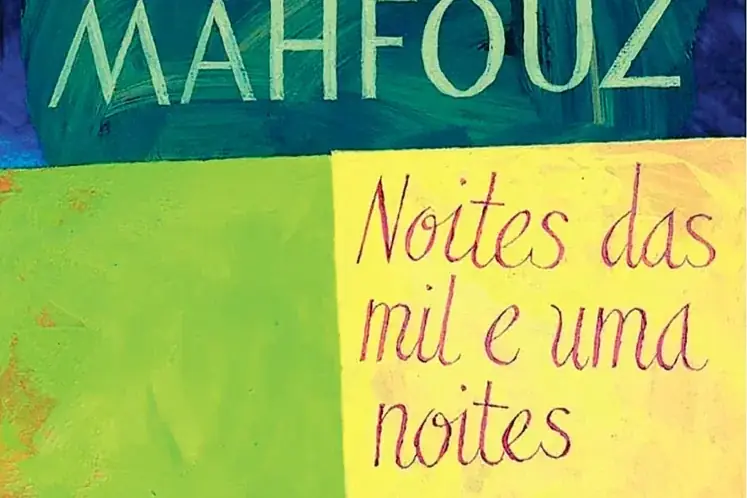 MAHFOUZ
Noites das
mil e uma
noites